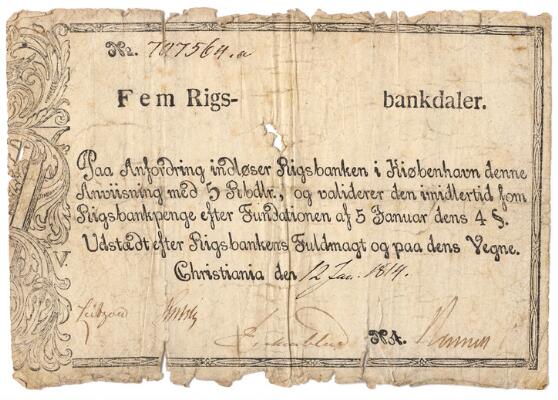 No. 707564.a
Fem Rigs- bankdaler.
Paa Anfordring indløser Rigsbanken i Kiøbenhavn denne
Anviisning med 5 Rbdlr., og validerer den imidlertid som
Rigsbankpenge efter Fundationen af 5 Januar dens 4 §.
Udstædt efter Rigsbankens Fuldmagt og paa dens Vegne.
Christiania den 12 Jan. 1814.
V.
Nt.